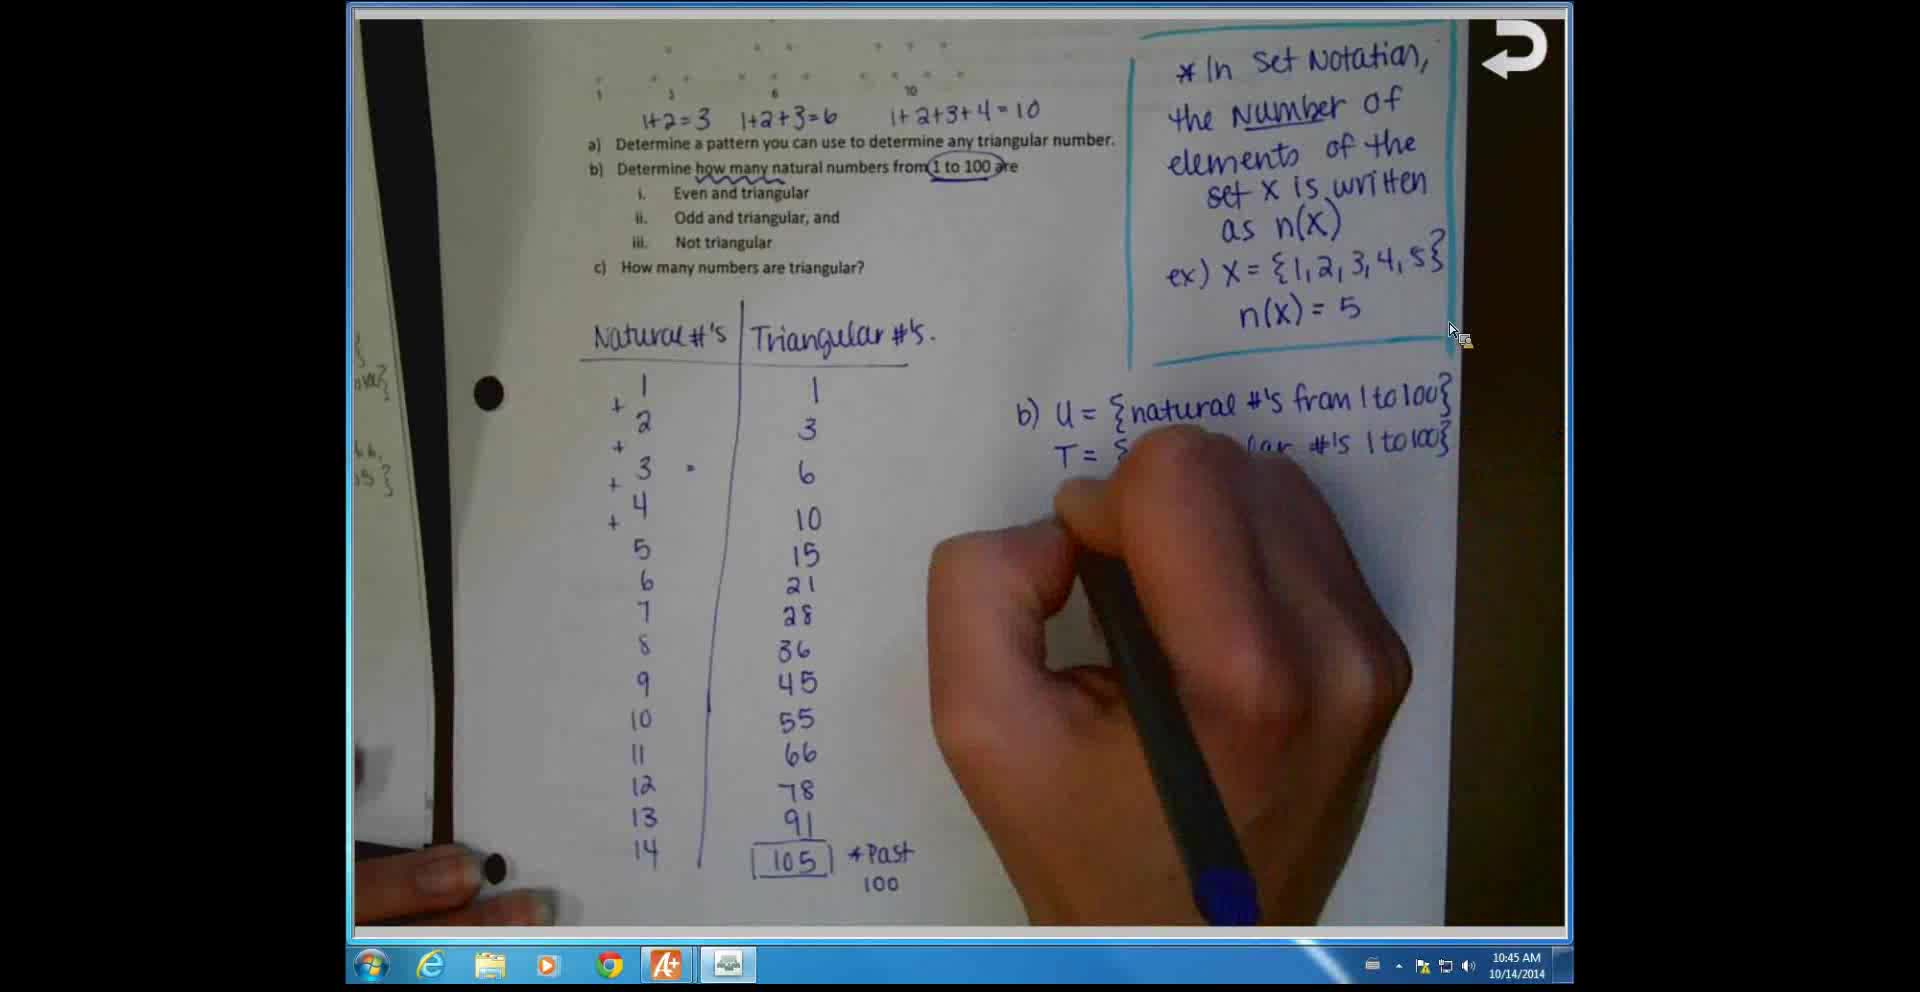 1 3 6 10
1+2=3 1+2+3=6 1+2+3+4=10
a) Determine a pattern you can use to determine any triangular number.
b) Determine how many natural numbers from 1 to 100 are
i. Even and triangular
ii. Odd and triangular, and
iii. Not triangular
c) How many numbers are triangular?
Natural #'s Triangular #'s.
1 1
+
2 3
+
3 6
+
4 10
+
5 15
6 21
7 28
8 36
9 45
10 55
11 66
12 78
13 91
14 105 *Past
100
*In Set Notation,
the Number of
elements of the
set X is written
as n(X)
ex) X = {1, 2, 3, 4, 5}
n(X) = 5
b) U = {natural #'s from 1 to 100}
T = { #'s 1 to 100}
10:45 AM
10/14/2014